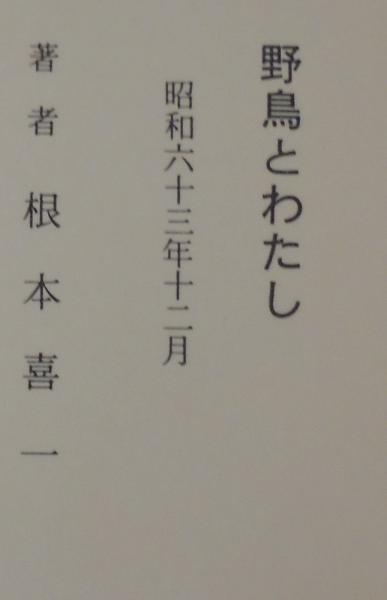 野鳥とわたし
昭和六十三年十二月
著者 根本喜一